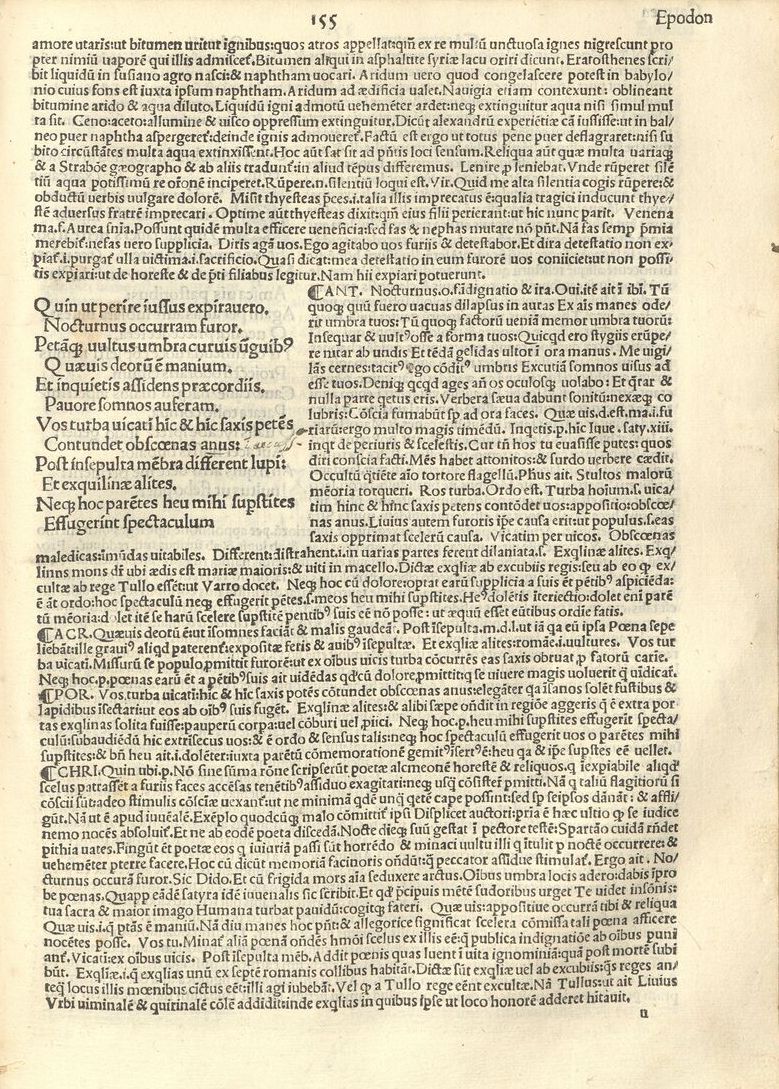 155
Epodon
amore utaris:ut bitumen uritur ignibus:quos atros appellat:qm̄ ex re multū unctuosa ignes nigrescunt pro
pter nimiū uaporē qui illis admiscet̄. Bitumen aliqui in asphaltite syriæ lacu oriri dicunt. Eratosthenes scri/
bit liquidū in susiano agro nasci:& naphtham uocari. Aridum uero quod congelascere potest in babylo/
nio cuius fons est iuxta ipsum naphtham. Aridum ad ædificia ualet. Nauigia etiam contexunt: oblineant
bitumine arido & aqua diluto. Liquidū igni admotū uehemēter ardet:neq; extinguitur aqua nisi simul mul
ta sit. Ceno:aceto:allumine & uisco oppressum extinguitur. Dicūt alexandrū experiētiæ cā iussisse:ut in bal/
neo puer naphtha aspergeret̄:deinde ignis admoueret̄. Factū est ergo ut totus pene puer deflagraret:nisi su
bito circūstātes multa aqua extinxissent. Hoc aūt sat sit ad pn̄tis loci sensum. Reliqua aūt quæ multa uariaq;
& a Strabōe gæographo & ab aliis tradunt̄:in aliud tēpus differemus. Lenire p̱ leniebat. Vnde rūperet silē
tiū aqua potissimū re ofonē inciperet. Rūpere.n.silentiū loqui est. Vir. Quid me alta silentia cogis rūpere:&
obductū uerbis uulgare dolorē. Misit thyesteas p̄ces.i.talia illis imprecatus ē:qualia tragici inducunt thye/
stē aduersus fratrē imprecari. Optime aūt thyesteas dixit:qm̄ eius filii perierant:ut hic nunc parit. Venena
ma.f. Aurea sn̄ia. Possunt quidē multa efficere ueneficia:sed fas & nephas mutare nō pn̄t. Nā fas semp p̄mia
merebit̄:nefas uero supplicia. Diris agā uos. Ego agitabo uos furiis & detestabor. Et dira detestatio non ex/
piat̄.i.purgat̄ ulla uictima.i.sacrificio. Quasi dicat:mea detestatio in eum furorē uos coniiciet:ut non possi/
tis expiari:ut de horeste & de p̄ti filiabus legitur. Nam hii expiari potuerunt.
Quin ut perire iussus expirauero,
Nocturnus occurram furor.
Petāq; uultus umbra curuis ūguib9
Quæuis deorū ē manium.
Et inquietis assidens præcordiis,
Pauore somnos auferam.
Vos turba uicati hic & hic saxis petēs
Contundet obscœnas anus:
Post insepulta mēbra different lupi:
Et exquilinæ alites.
Neq; hoc parētes heu mihi supstites
Effugerint spectaculum
¶CANT. Nocturnus.o.fādignatio & ira. Oui.itē ait ī ibī. Tū
quoq; quū fuero uacuas dilapsus in auras Ex aīs manes ode/
rit umbra tuos: Tū quoq; factorū ueniā memor umbra tuorū:
Insequar & uult9 osse a forma tuos: Quicqd ero stygiis erūpe/
re nitar ab undis Et tēdā gelidas ultor ī ora manus. Me uigi/
esse tuos. Deniq; qcqd ages
nulla parte qetus eris. Verbera sæua dabunt sonitū:nexæq; co
lubris: Cōscia fumabūt sp ad ora faces. Quæuis.d.est.ma.i.fu
riarū:ergo multo magis timēdū. Inqetis.p. hic Iuue.saty.xiii.
inqt de periuris & scelestis. Cur tn̄ hos tu euasisse putes: quos
diri conscia facti. Mēs habet attonitos:& surdo uerbere cædit.
Occultū q̄tiēte aīo tortore flagellū. Phus ait. Stultos malorū
mēoria torqueri. Ros turba. Ordo est. Turba hoīum.s.uica/
tim hinc & hinc saxis petens contōdet uos:appositio:obscœ/
nas anus. Liuius autem furoris ip̄e causa erit:ut populus.s.eas
saxis opprimat scelerū causa. Vicatim per uicos. Obscœnas
maledicas:imūdas uitabiles. Different:distrahent.i.in uarias partes ferent dilaniata.s. Exqlinæ alites. Exq/
linns mons dr̄ ubi ædis est mariæ maioris:& uiti in macello. Dictæ exqliæ ab excubiis regis:seu ab eo q̱ ex/
cultæ ab rege Tullo essēt:ut Varro docet. Neq; hoc cū dolore:optat earū supplicia a suis ēt pētib9 aspiciēda:
ē āt ordo:hoc spectaculū neq; effugerit pētes.s.meos heu mihi supstites. He9 dolētis īteriectio:dolet eni parē
tū mēoria:dolet itē se harū scelere supstitē pentib9 suis eē nō posse: ut æquū esset eūtibus ordīe fatis.
¶ACR. Quæuis deotū ē:ut īsomnes faciāt & malis gaudeāt. Post īsepulta.m.d.l.ut iā qa eū ipsa Pœna sepe
liebāt:ille graui9 aliqd paterent̄:expositæ feris & auib9 īsepultæ. Et exqliæ alites:romæ.i.uultures. Vos tur
ba uicati. Missurū se populo.pmittit furorē:ut ex oībus uicis turba cōcurrēs eas saxis obruat.p fatorū carie.
Neq; hoc.p.pœnas earū ēt a pētib9 suis ait uidēdas qd' cū dolore.pmittit:q se uiuere magis uoluerit q̄ uīdicar̄.
¶POR. Vos turba uicati:hic & hīc saxis potēs cōtundet obscœnas anus:elegāter qa īsanos solēt fustibus &
lapidibus īsectari:ut eos ab oīb9 suis fugēt. Exqlinæ alites:& alibi sæpe on̄dit in regiōe aggeris q̄ ē extra por
tas exqlinas solita fuisse:pauperū corpa:uel cōburi uel.p̱iici. Neq; hoc.p.heu mihi supstites effugerit specta/
culū:subaudiēdū hic extrīsecus uos:& ē ordo & sensus talis:neq; hoc spectaculū effugerit uos o parētes mihi
supstites:& bn̄ heu ait.i.dolēter:iuxta parētū cōmemorationē gemit9 īsert9 ē:heu qa & ip̄e supstes eē uellet.
¶CHRI. Quin ubi.p. Nō sine sūma rōne scripserūt poetæ alcmeonē horestē & reliquos.q īexpiabile aliqd'
scelus patrasset a furiis faces accēsas tenētib9 assiduo exagitari:neq; usq̄ cōsister̄.pmitti. Nā q taliū flagitiorū sī
cōscii sūt:adeo stimulis cōsciæ uexant̄:ut ne minimā qdē unq̄ qetē cape possint:sed sp seipsos dānāt: & affli/
gūt. Nā ut ē apud iuuēalē. Exēplo quodcūq; malo cōmittit̄ ipsī Displicet auctori:pria ē hæc ultio q̱ se iudice
nemo nocēs absoluit̄. Et ne ab eodē poeta discedā. Nocte dieq; suū gestat ī pectore testē: Spartāo cuidā rn̄det
pithia uates. Fingūt ēt poetæ eos q iniuriā passi sūt horrēdo & minaci uultu illi q ītulit p nocte occurrere:&
uehemēter pterre facere. Hoc cū dicūt memoriā facinoris on̄dūt:q̄ peccator assidue stimulat̄. Ergo ait. No/
cturnus occurā furor. Sic Dido. Et cū frigida mors aīa seduxere arctus. Oībus umbra locis adero:dabis īpro
be pœnas. Quapp eādē satyra idē iuuenalis sic scribit. Et qd' p̄cipuis mētē sudoribus urget Te uidet insōnis:
tua sacra & maior imago Humana turbat pauidū:cogitq; fateri. Quæuis:appositiue occurrā tibi & reliqua
Quæuis.i.q ptās ē maniū. Nā diu manes hoc pn̄t:& allegorice significat scelera cōmissa tali pœna afficere
nocētes posse. Vos tu. Minat̄ aliā pœnā on̄dēs hmōi scelus ex illis eē:q publica indignatiōe ab oībus puni
ant̄. Vicatī:ex oībus uicis. Post īsepulta mēb. Addit pœnis quas luent ī uita ignominiā:quā post mortē subi
būt. Exqliæ.i.q exqlias unū ex septē romanis collibus habitāt. Dictæ sūt exqliæ uel ab excubiis:qs reges an/
teq̄ locus illis mœnibus cīctus eēt:illi agi iubebāt. Vel q̱ a Tullo rege eēnt excultæ. Nā Tullus:ut ait Liuius
Vrbi uiminalē & quirinalē cōlē addidit:inde exqlias in quibus ipse ut loco honorē adderet hītauit.
u